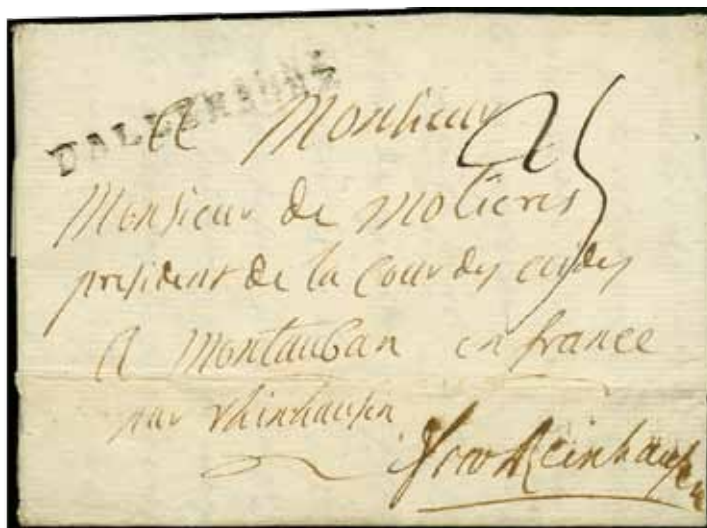 D'ALLEMAGNE
A Monsieur
25
Monsieur de Molieres
president de la Cour des eydes
A Montauban en france
par rhinhausen
Reinhausen